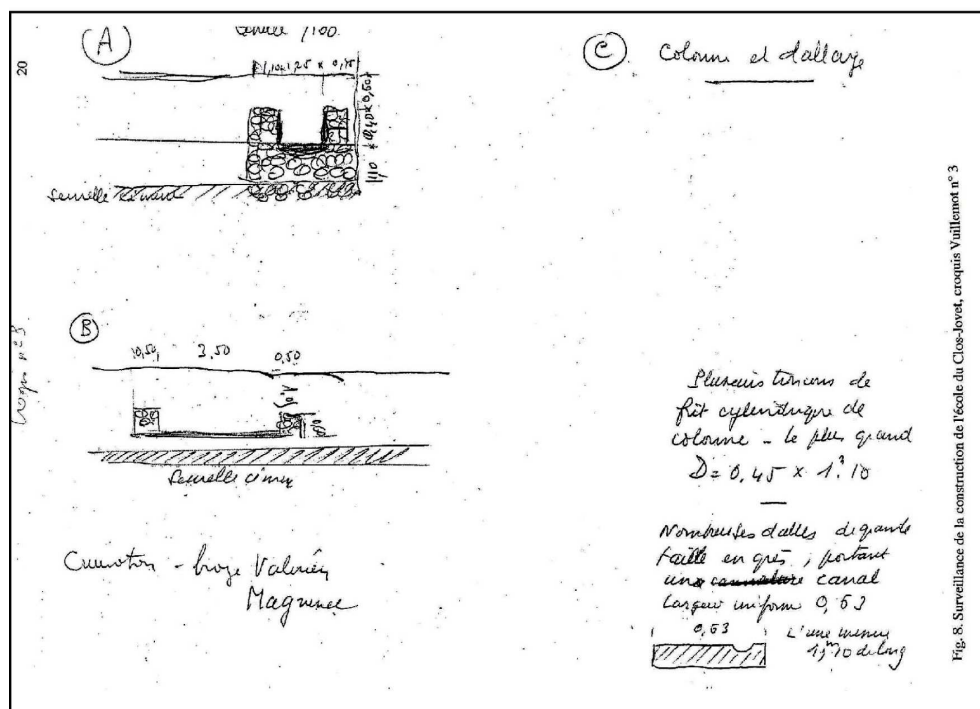 20
A
1/100
0,50
0,40
1,10
B
0,50
3,50
0,50
Semelle ciment
n° 3
bronze Valérien
Magnence
C
Colonne et dallage
Plusieurs tronçons de
fût cylindrique de
colonne - le plus grand
D = 0,45 × 1,10
Nombreuses dalles de grande
taille en grès, portant
un canal
largeur uniforme 0,53
0,53
L'une mesure
1,70 de long
Fig. 8. Surveillance de la construction de l'école du Clos-Jovet, croquis Vuillemot n° 3